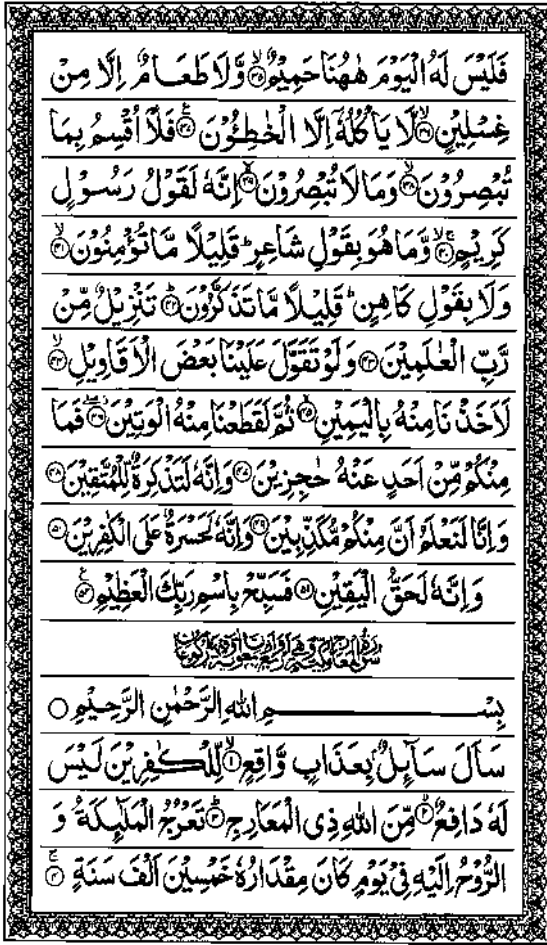 فَلَيْسَ لَهُ الْيَوْمَ هٰهُنَا حَمِيْمٌ ﴿۳۵﴾ وَّلَا طَعَامٌ اِلَّا مِنْ
غِسْلِيْنٍ ﴿۳۶﴾ لَّا يَاْكُلُهٗۤ اِلَّا الْخٰطِـُٔوْنَ ﴿۳۷﴾ فَلَاۤ اُقْسِمُ بِمَا
تُبْصِرُوْنَ ﴿۳۸﴾ وَمَا لَا تُبْصِرُوْنَ ﴿۳۹﴾ اِنَّهٗ لَقَوْلُ رَسُوْلٍ
كَرِيْمٍ ﴿۴۰﴾ وَّمَا هُوَ بِقَوْلِ شَاعِرٍ ؕ قَلِيْلًا مَّا تُؤْمِنُوْنَ ﴿۴۱﴾
وَلَا بِقَوْلِ كَاهِنٍ ؕ قَلِيْلًا مَّا تَذَكَّرُوْنَ ﴿۴۲﴾ تَنْزِيْلٌ مِّنْ
رَّبِّ الْعٰلَمِيْنَ ﴿۴۳﴾ وَلَوْ تَقَوَّلَ عَلَيْنَا بَعْضَ الْاَقَاوِيْلِ ﴿۴۴﴾
لَاَخَذْنَا مِنْهُ بِالْيَمِيْنِ ﴿۴۵﴾ ثُمَّ لَقَطَعْنَا مِنْهُ الْوَتِيْنَ ﴿۴۶﴾ فَمَا
مِنْكُمْ مِّنْ اَحَدٍ عَنْهُ حٰجِزِيْنَ ﴿۴۷﴾ وَاِنَّهٗ لَتَذْكِرَةٌ لِّلْمُتَّقِيْنَ ﴿۴۸﴾
وَاِنَّا لَنَعْلَمُ اَنَّ مِنْكُمْ مُّكَذِّبِيْنَ ﴿۴۹﴾ وَاِنَّهٗ لَحَسْرَةٌ عَلَى الْكٰفِرِيْنَ ﴿۵۰﴾
وَاِنَّهٗ لَحَقُّ الْيَقِيْنِ ﴿۵۱﴾ فَسَبِّحْ بِاسْمِ رَبِّكَ الْعَظِيْمِ ﴿۵۲﴾
بِسْمِ اللهِ الرَّحْمٰنِ الرَّحِيْمِ
سَاَلَ سَآىِٕلٌۢ بِعَذَابٍ وَّاقِعٍ ﴿۱﴾ لِّلْكٰفِرِيْنَ لَيْسَ
لَهٗ دَافِعٌ ﴿۲﴾ مِّنَ اللهِ ذِى الْمَعَارِجِ ﴿۳﴾ تَعْرُجُ الْمَلٰٓىِٕكَةُ وَ
الرُّوْحُ اِلَيْهِ فِيْ يَوْمٍ كَانَ مِقْدَارُهٗ خَمْسِيْنَ اَلْفَ سَنَةٍ ﴿۴﴾